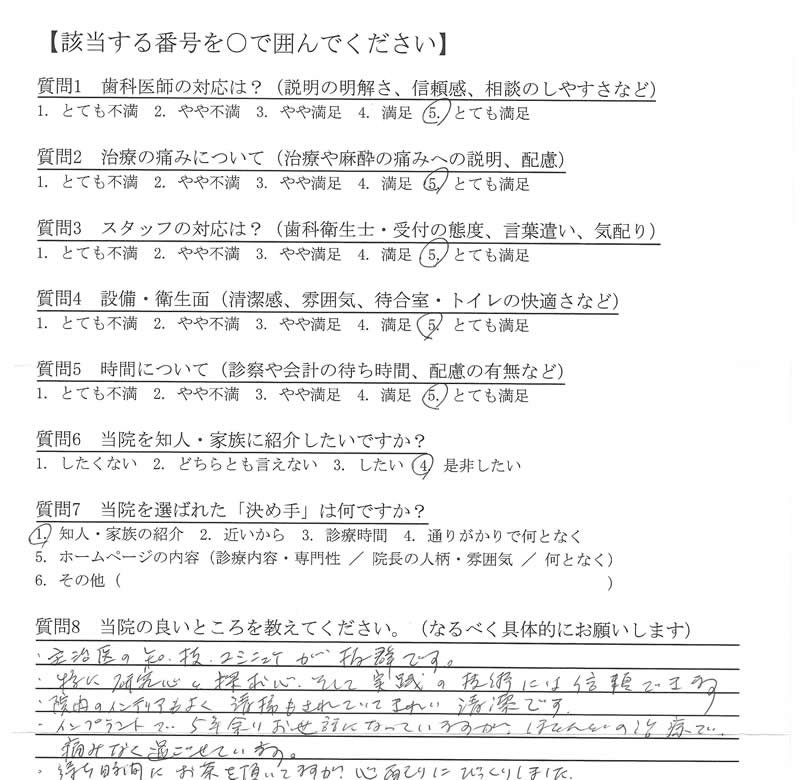 【該当する番号を○で囲んでください】
質問1 歯科医師の対応は？（説明の明解さ、信頼感、相談のしやすさなど）
1. とても不満 2. やや不満 3. やや満足 4. 満足 5. とても満足
質問2 治療の痛みについて（治療や麻酔の痛みへの説明、配慮）
1. とても不満 2. やや不満 3. やや満足 4. 満足 5. とても満足
質問3 スタッフの対応は？（歯科衛生士・受付の態度、言葉遣い、気配り）
1. とても不満 2. やや不満 3. やや満足 4. 満足 5. とても満足
質問4 設備・衛生面（清潔感、雰囲気、待合室・トイレの快適さなど）
1. とても不満 2. やや不満 3. やや満足 4. 満足 5. とても満足
質問5 時間について（診察や会計の待ち時間、配慮の有無など）
1. とても不満 2. やや不満 3. やや満足 4. 満足 5. とても満足
質問6 当院を知人・家族に紹介したいですか？
1. したくない 2. どちらとも言えない 3. したい 4 是非したい
質問7 当院を選ばれた「決め手」は何ですか？
1. 知人・家族の紹介 2. 近いから 3. 診療時間 4. 通りがかりで何となく
5. ホームページの内容（診療内容・専門性 ／ 院長の人柄・雰囲気 ／ 何となく）
6. その他（ ）
質問8 当院の良いところを教えてください。（なるべく具体的にお願いします）
・主治医の知・技・コミュニケが抜群です。
・特に研究心と探求心、そして実践の技術には信頼できます
・院内のインテリアもよく清掃もされていてきれい 清潔です。
・インプラントで5年余りお世話になっていますが、ほとんどの治療で、
痛みなく過ごせています。
・待ち時間にお茶を頂いてますが、心配りにびっくりしました。